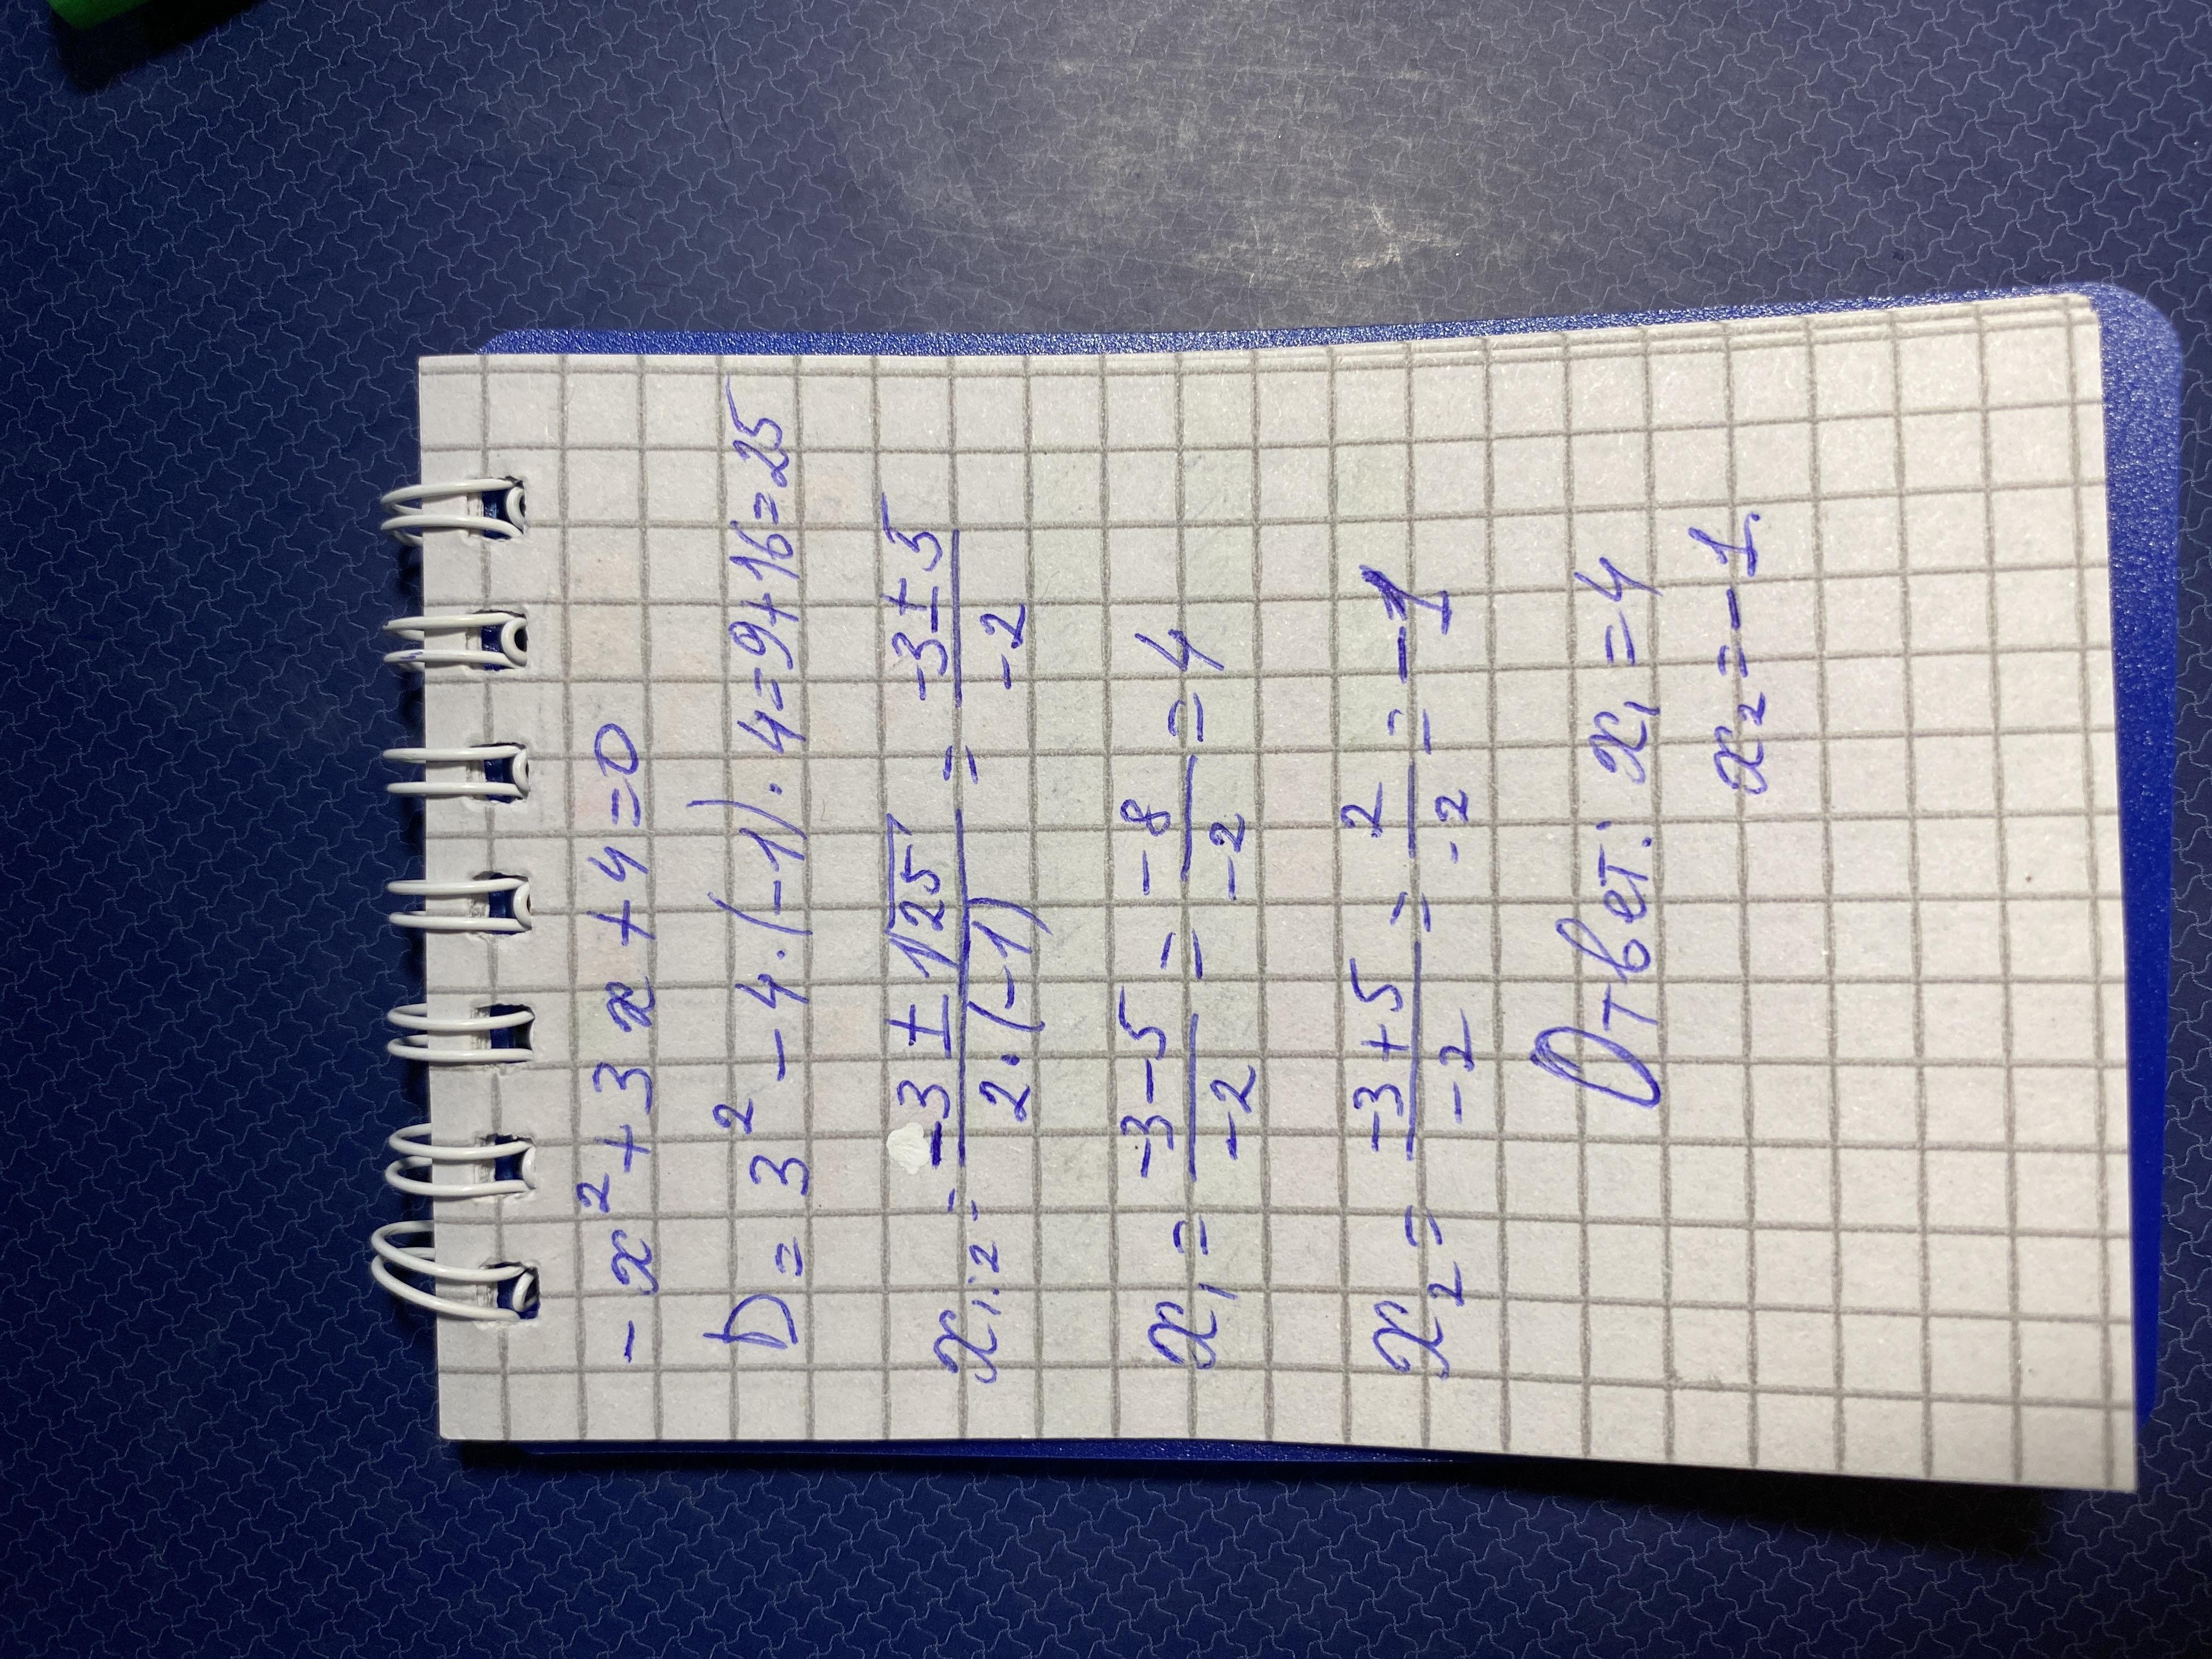 -x²+3x+4=0
D=3²-4·(-1)·4=9+16=25
x₁.₂=(-3±√25)/(2·(-1))=(-3±5)/(-2)
x₁=(-3-5)/(-2)=(-8)/(-2)=4
x₂=(-3+5)/(-2)=2/(-2)=-1
Ответ: x₁=4
x₂=-1.